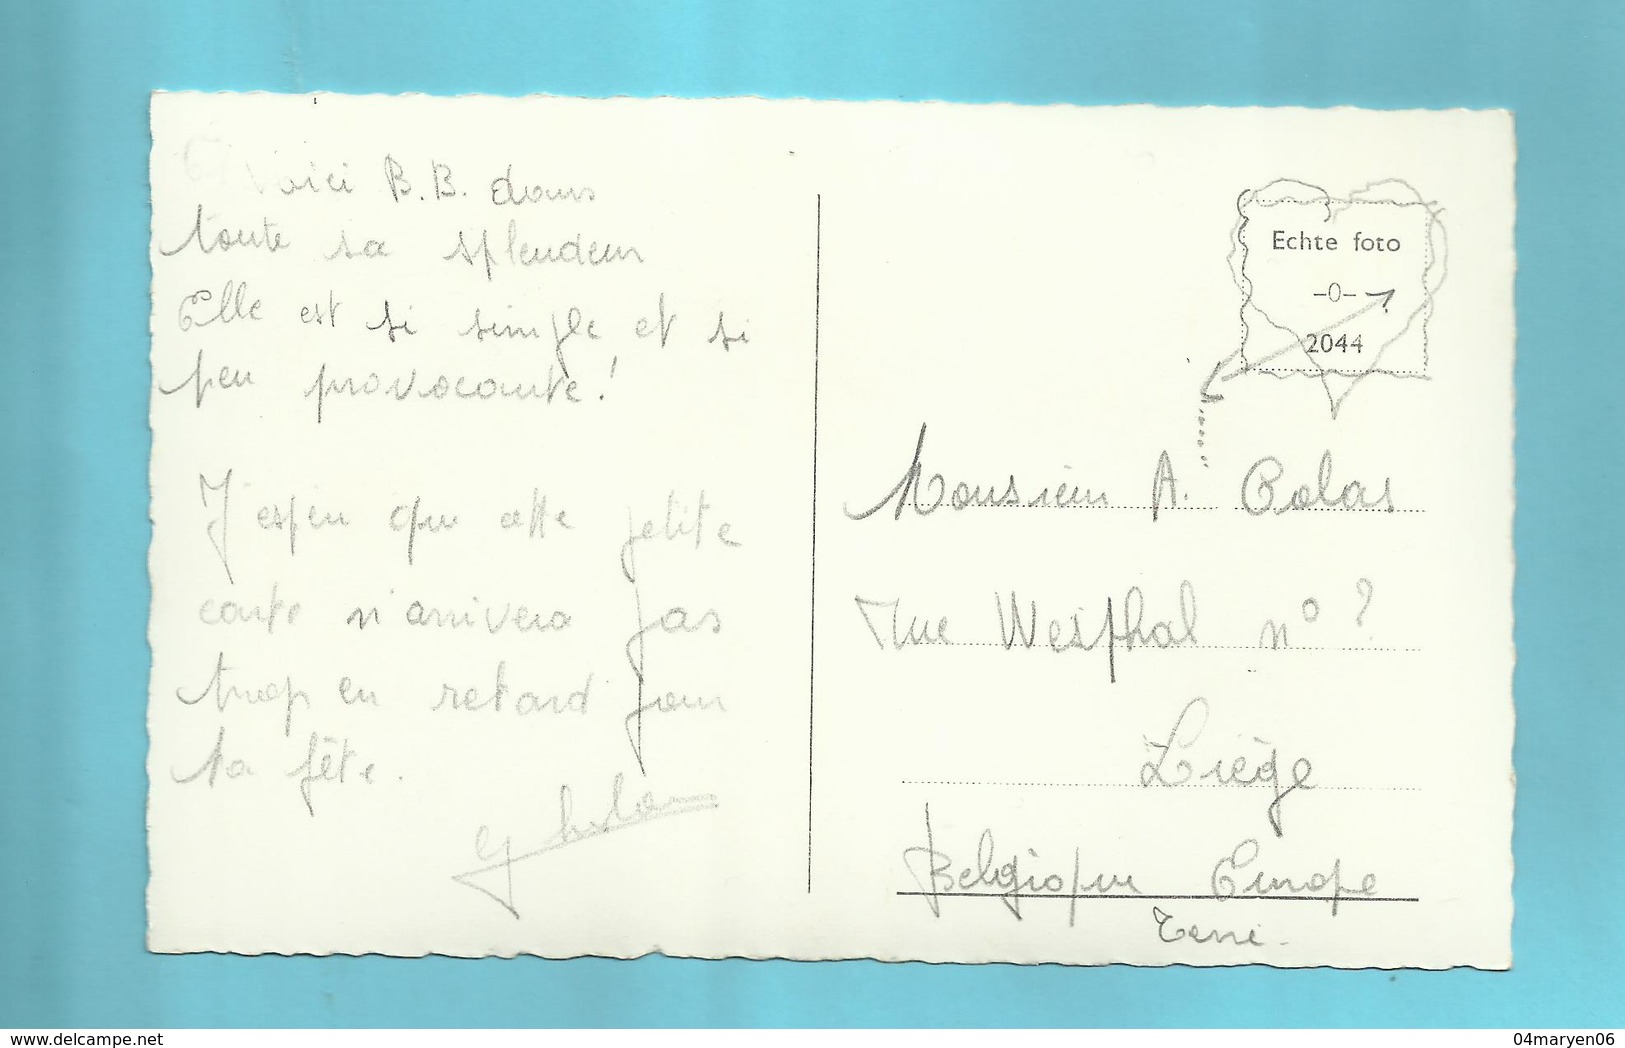 Voici B.B. dans
toute sa splendeur
Elle est si simple et si
peu provocante!
J'espère que cette petite
carte n'arrivera pas
trop en retard pour
ta fête.
Echte foto
-0-
2044
Monsieur A. Colas
Rue Westphal n° ?
Liège
Belgique Europe
Terre.
delcampe.net
04maryen06